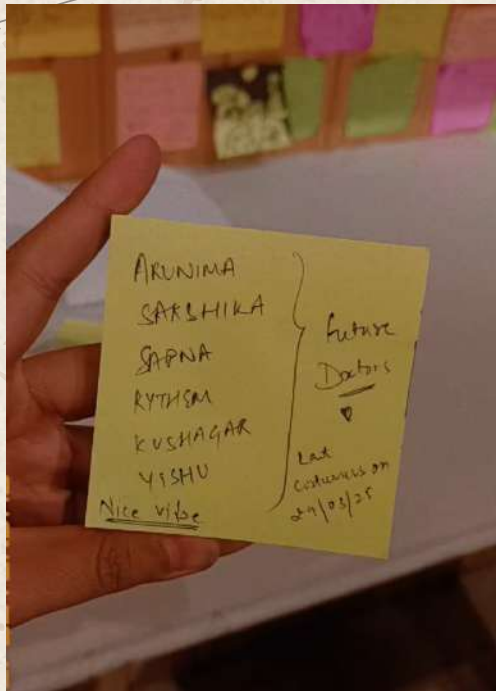 ARUNIMA
SAKSHIKA
SAPNA
RYTHEM
KUSHAGAR
YISHU
Nice vibe
future
Doctors
Last
costumers on
29/03/25